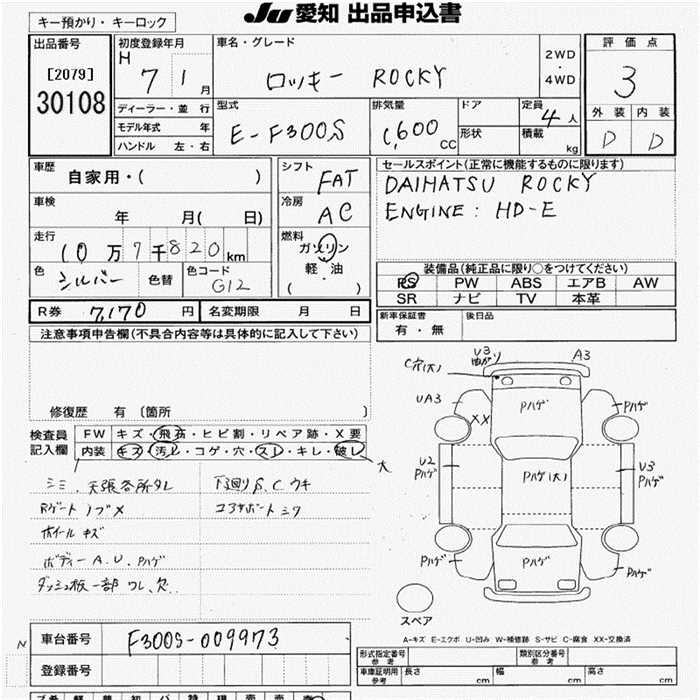 JU 愛知 出品申込書
キー預かり・キーロック
出品番号
[2079]
30108
初度登録年月
H 7 1 月
ディーラー・並 行
モデル年式 年
ハンドル 左・右
車名・グレード
ロッキー ROCKY
2WD
・
4WD
型式
E-F300S
排気量
1,600 CC
ドア
形状
定員
4 人
積載
kg
評価点
3
外装 内装
D D
車歴
自家用・( )
車検
年 月( 日)
走行
10万7千820km
色
シルバー 色替
色コード
G12
シフト
FAT
冷房
AC
燃料
ガソリン
軽・油
( ・ )
セールスポイント(正常に機能するものに限ります)
DAIHATSU ROCKY
ENGINE: HD-E
装備品(純正品に限り○をつけてください)
PS PW ABS エアB AW
SR ナビ TV 本革
R券 7,170 円 名変期限 月 日
新車保証書
有・無
後日品
注意事項申告欄(不具合内容等は具体的に記入して下さい)
修復歴 有 〔箇所 〕
検査員
記入欄
FW キズ・飛石・ヒビ割・リペア跡・X要
内装 キズ・汚レ・コゲ・穴・スレ・キレ・破レ 大
シミ、天張各所タレ
Rゲートノブメ
ホイールキズ
ボディーA.U.Pハゲ
ダッシュ板一部ワレ、欠
下廻りS.Cウキ
コアサポートミク
U3
A3
C穴(大)
UA3
XX
Pハゲ
Pハゲ
U2
Pハゲ
Pハゲ(大)
U3
Pハゲ
Pハゲ
Pハゲ
Pハゲ
スペア
A-キズ E-エクボ U-凹み W-補修跡 S-サビ C-腐食 XX-交換済
N
車台番号 F300S-009973
登録番号
形式指定番号
参考
類別区分番号
参考
車庫証明用
参考
長さ cm 幅 cm 高さ cm